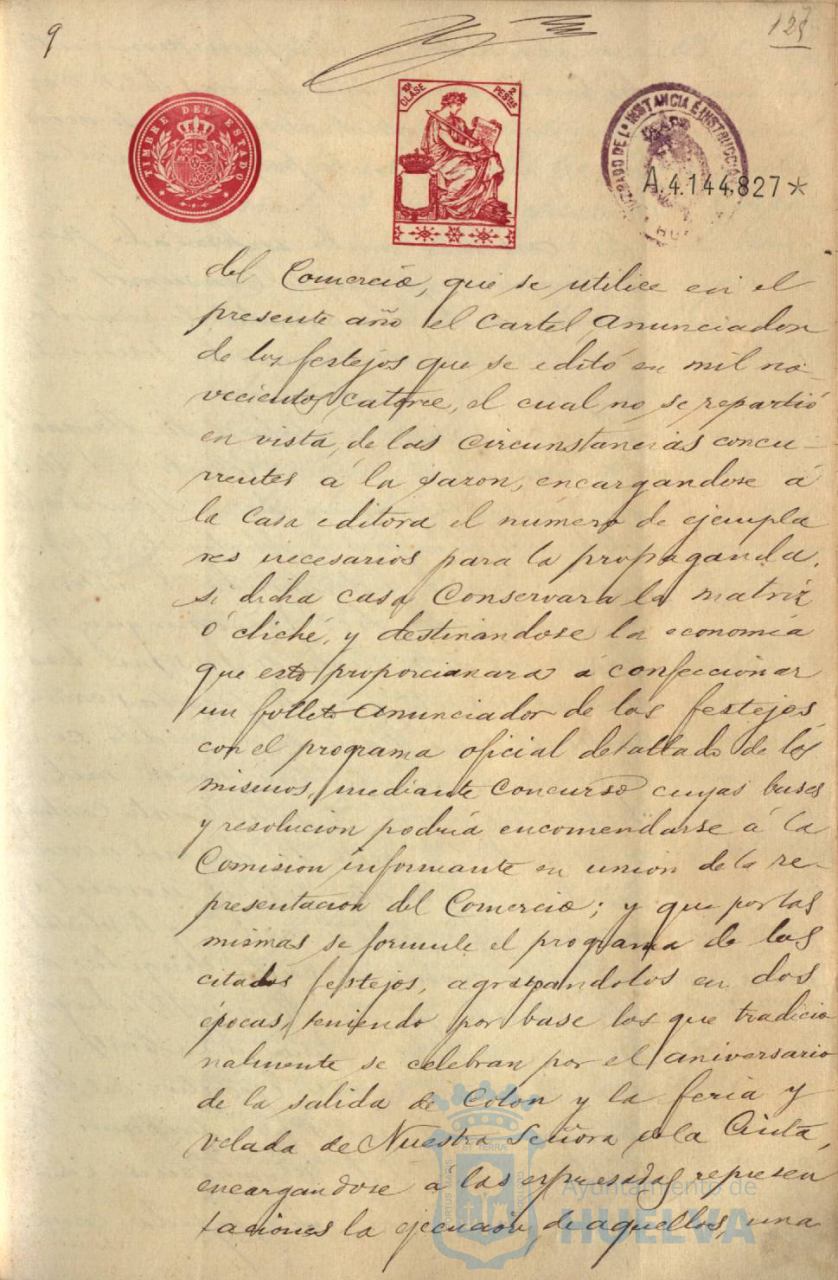 9
127
TIMBRE DEL ESTADO
10ª CLASE
2 PESETAS
JUZGADO DE 1ª INSTANCIA É INSTRUCCIÓN
A.4.144.827*
del Comercio, que se utilice en el
presente año el cartel anunciador
de los festejos que se editó en mil no-
vecientos catorce, el cual no se repartió
en vista, de las circunstancias concu-
rrentes á la sazon, encargandose á
la casa editora el número de ejempla
res necesarios para la propaganda,
si dicha casa conservara la matriz
ó cliché, y destinándose la economía
que esto proporcionara á confeccionar
un folleto anunciador de los festejos
con el programa oficial detallado de los
mismos, mediante concurso cuyas bases
y resolución podría encomendarse á la
Comision informante en union de la re-
presentacion del Comercio; y que por las
mismas se formule el programa de los
citados festejos, agrupandolos en dos
épocas, teniendo por base los que tradicio
nalmente se celebran por el aniversario
de la salida de Colon y la feria y
velada de Nuestra Señora de la Cinta,
encargandose á las expresadas represen
taciones la ejecucion de aquellos, una
Ayuntamiento de
HUELVA